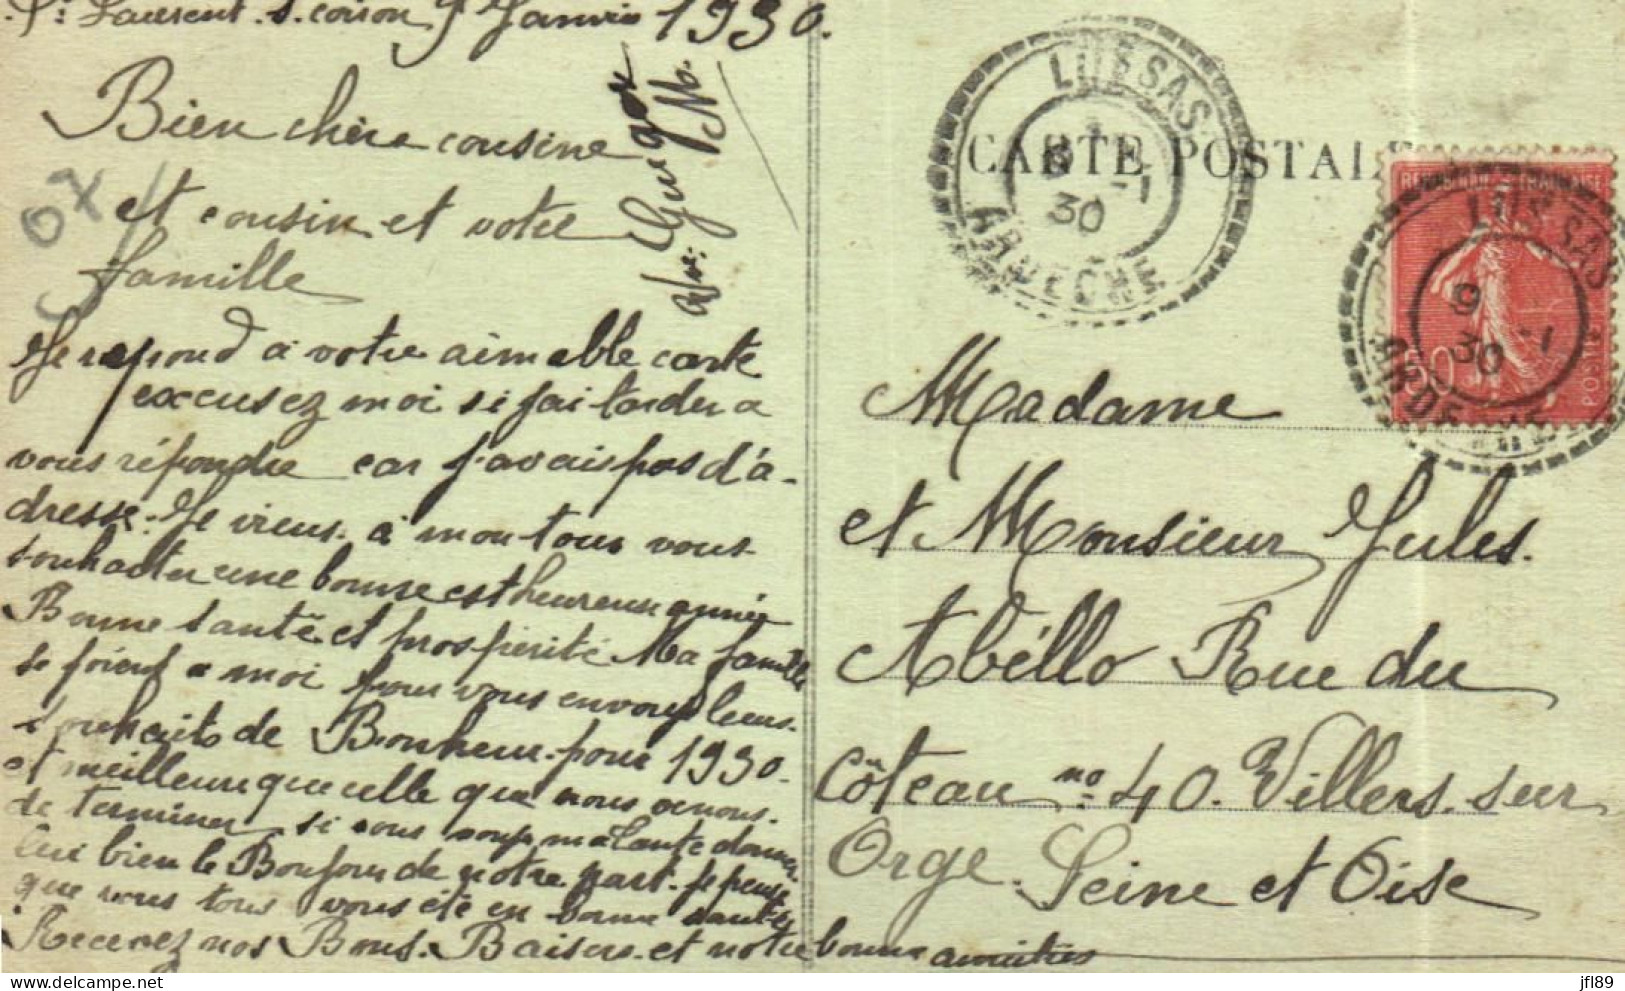 St Laurent. s. coiron 9 Janvier 1930.
Bien chère cousine
et cousin et votre
famille
Je repond à votre aimable carte
excusez moi si j'ai tarder a
vous répondre car j'avais pas d'a-
dresse. Je viens. à mon tour vous
souhaiter une bonne est heureuse année
Bonne santé et prospérité Ma famille
se joient a moi pour vous envoyer leurs
souhaits de Bonheur pour 1930.
et meilleure que celle que nous venons.
de terminer si vous voyez ma tante donner
lui bien le Bonjour de notre part. Je pense
que vous tous vous étè en bonne santé
Recevez nos Bons. Baisers et notre bonne amitiés
Vve:
M.
CARTE POSTALE
LUSSAS
9 -1
30
ARDECHE
REPUBLIQUE FRANÇAISE
50
POSTES
LUSSAS
9 -1
30
ARDECHE
Madame
et Monsieur Jules.
Abéllo Rue du
côteau no 40. Villers. sur
Orge. Seine et Oise
jfl89